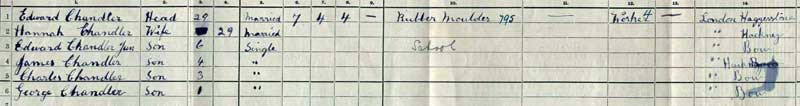 1 Edward Chandler Head 29 Married 7 4 4 — Rubber Moulder 795 — Worker — London Haggerstone
2 Hannah Chandler Wife 29 Married " Hackney
3 Edward Chandler Jun Son 6 Single School " Bow
4 James Chandler Son 4 " "
5 Charles Chandler Son 3 " " Bow
6 George Chandler Son 1 " " Bow